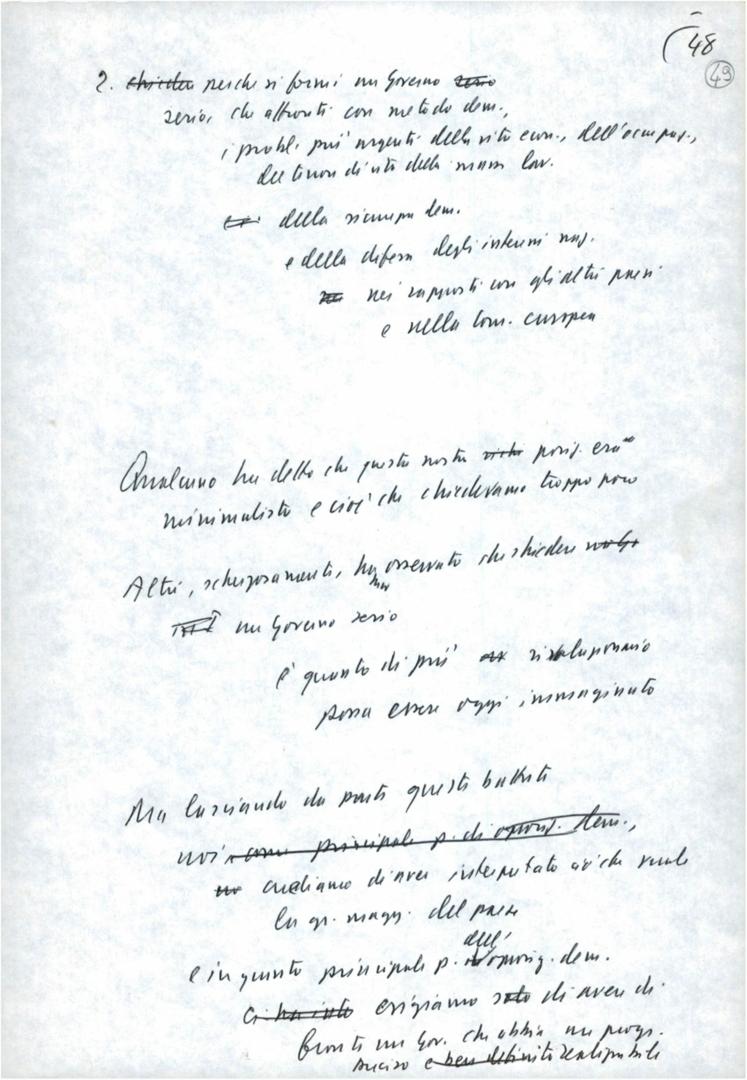 48
49
2. chieder perché si formi un Governo serio
serio, che affronti con metodo dem.,
i probl. più urgenti della vita econ., dell'occupaz.,
del tenor di vita delle masse lav.
della sicurezza dem.
e della difesa degli interessi naz.
nei rapporti con gli altri paesi
e nella Com. europea
Qualcuno ha detto che questa nostra posiz. era
minimalista e cioè che chiedevamo troppo poco
Altri, scherzosamente, hanno osservato che chiedere
un Governo serio
è quanto di più rivoluzionario
possa essere oggi immaginato
Ma lasciando da parte queste battute
noi come principale p. di opposiz. dem.,
crediamo di aver interpretato ciò che vuole
la gr. magg. del paese
e in quanto principale p. dell'opposiz. dem.
esigiamo solo di avere di
fronte un Gov. che abbia un progr.
preciso e ben definito realizzabile